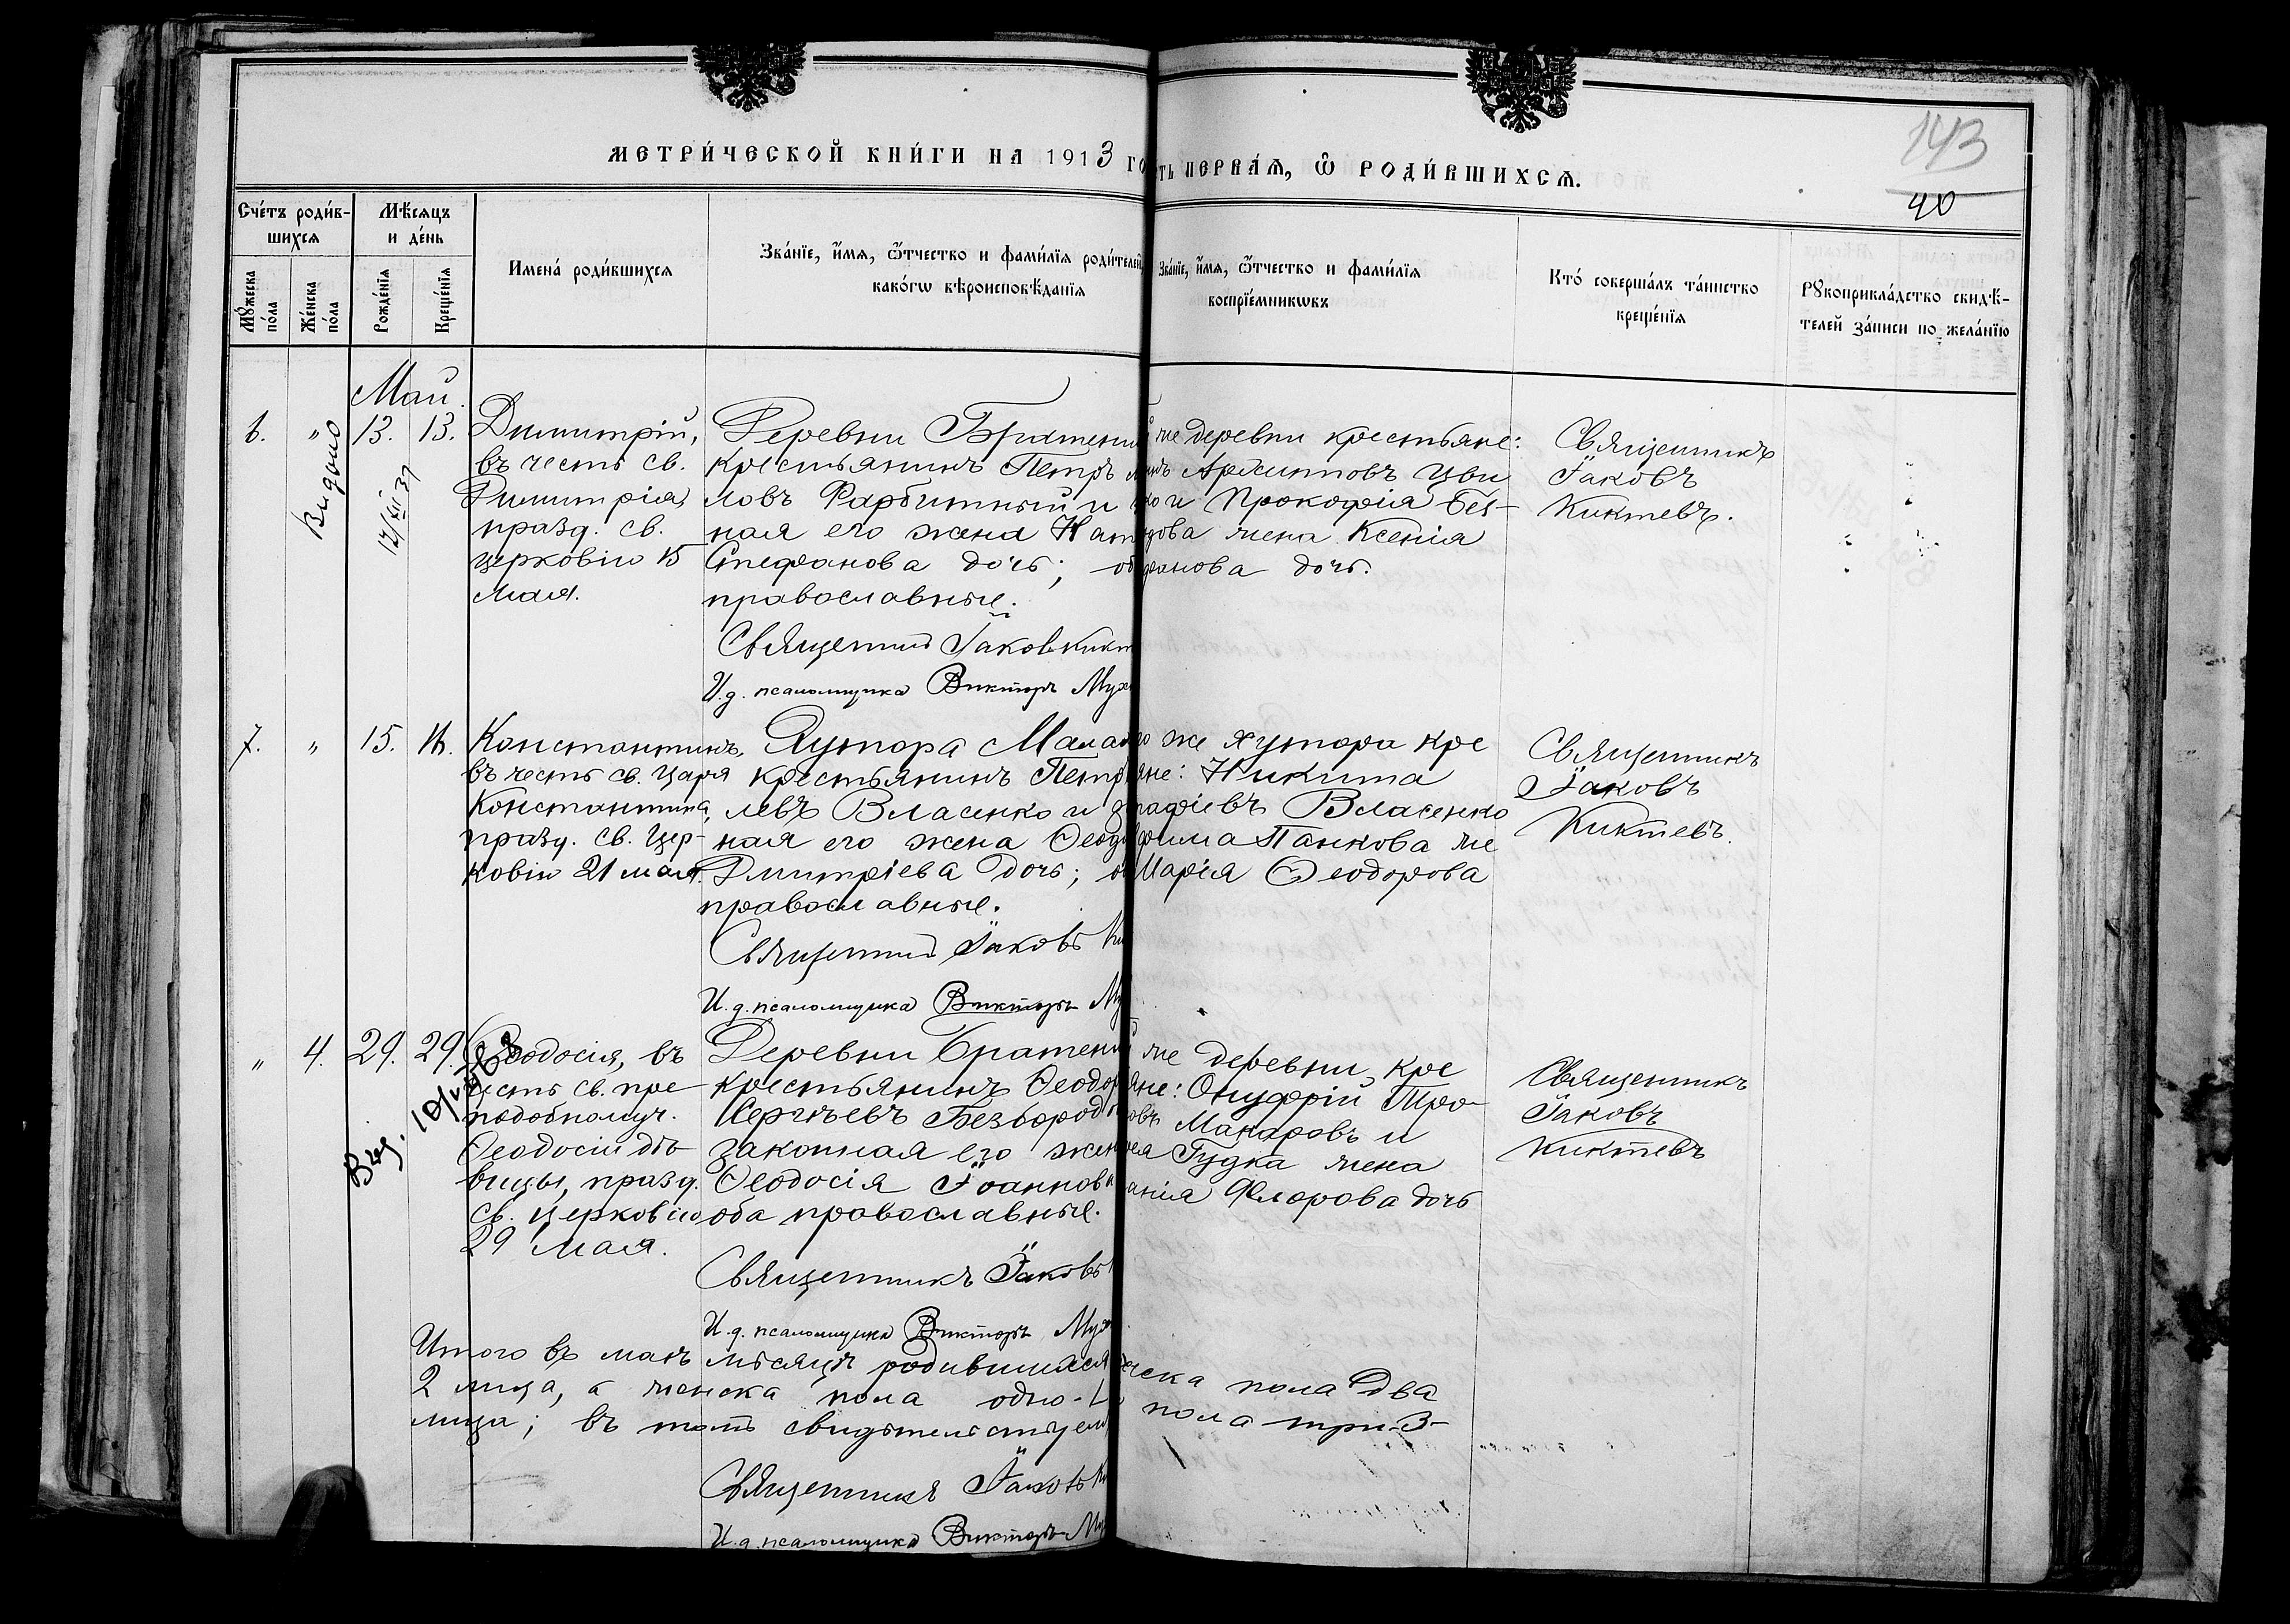 МЕТРИ́ЧЕСКОЙ КНИ́ГИ НА 1913 ГО
ТЬ ПЕРВА́Ѧ, Ѿ РОДИ́ВШИХСѦ.
143
40
Сче́тъ роди́в-
шихсѧ
Мѣ́сѧцъ
и де́нь
Мꙋ́жеска
по́ла
Же́нска
по́ла
Рожде́нїѧ
Креще́нїѧ
Имена́ роди́вшихсѧ
Зва́нїе, и́мѧ, ѻ҆́тчество и фами́лїѧ роди́телей,
како́гѡ вѣроисповѣ́данїѧ
Зва́нїе, и́мѧ, ѻ҆́тчество и фами́лїѧ
воспрїе́мникѡвъ
Кто́ соверша́лъ та́инство
креще́нїѧ
Рꙋкоприкла́дство свидѣ́-
телей за́писи по жела́нїю
Май.
6. " 13. 13.
Выдано
Димитрій,
въ честь св.
Димитрія,
празд. св.
церковію 15
мая.
Деревни Братени
крестьянинъ Петръ
ловъ Фарбитный и
ная его жена Нат
Стефанова дочь; об
православные.
Священник Іаков Кикт
И.д. псаломщика Викторъ Мух
же деревни крестьяне:
Архиповъ Цви
ко и Прокофія Без-
дова жена Ксенія
фанова дочь.
Священникъ
Іаковъ
Киктевъ.
7. " 15. 16.
Константинъ,
въ честь св. Царя
Константина,
празд. св. цер-
ковію 21 мая.
Хутора Мала
крестьянинъ Петр
левъ Власенко и з
ная его жена Ѳеод
Дмитріева дочь; о
православные.
Священник Іаковъ Ки
И.д. псаломщика Викторъ Му
го же хутора кре
яне: Никита
рафіевъ Власенко
фима Панкова же
Марія Ѳеодорова
Священникъ
Іаковъ
Киктевъ.
" 4. 29. 29.
Выд.
Ѳеодосія, въ
честь св. пре
подобномуч.
Ѳеодосіи дѣ-
вицы, празд.
св. церковію
29 мая.
Деревни Братени
крестьянинъ Ѳеодор
Сергѣевъ Безбород
законная его жен
Ѳеодосія Іоаннова
оба православные.
Священникъ Іаковъ
И.д. псаломщика Викторъ Мух
же деревни кре
яне: Онуфрій Тро-
овъ Макаровъ и
Гудка жена
анія Флорова дочь
Священникъ
Іаковъ
Киктевъ
Итого въ маѣ мѣсяцѣ родившихся
2 лица, а женска пола одно-1
лица; въ томъ свидѣтельствуем
ческа пола два
пола три-3-
Священникъ Іаковъ Ки
И.д. псаломщика Викторъ Му